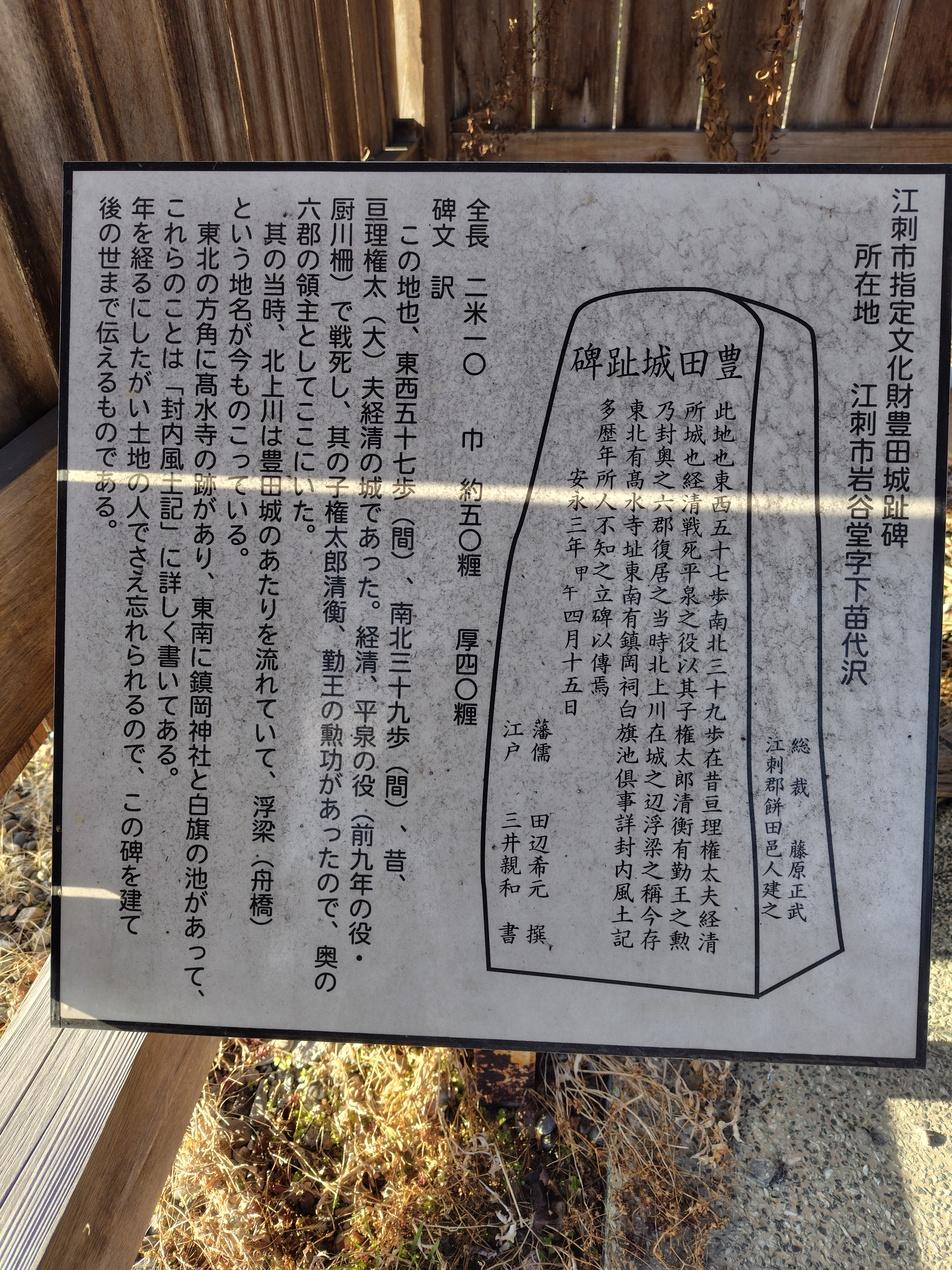 江刺市指定文化財豊田城趾碑
所在地　江刺市岩谷堂字下苗代沢
総裁　藤原正武
江刺郡餅田邑人建之
豊田城趾碑
此地也東西五十七歩南北三十九歩在昔亘理権太夫経清
所城也経清戦死平泉之役以其子権太郎清衡有勤王之勲
乃封奥之六郡復居之当時北上川在城之辺浮梁之稱今存
東北有髙水寺址東南有鎮岡祠白旗池俱事詳封内風土記
多歴年所人不知之立碑以傳焉
安永三年甲午四月十五日
藩儒　田辺希元　撰
江戸　三井親和　書
全長　二米一〇　巾　約五〇糎　厚四〇糎
碑文　訳
この地也、東西五十七歩（間）、南北三十九歩（間）、昔、
亘理権太（大）夫経清の城であった。経清、平泉の役（前九年の役・
厨川柵）で戦死し、其の子権太郎清衡、勤王の勲功があったので、奥の
六郡の領主としてここにいた。
其の当時、北上川は豊田城のあたりを流れていて、浮梁（舟橋）
という地名が今ものこっている。
東北の方角に髙水寺の跡があり、東南に鎮岡神社と白旗の池があって、
これらのことは「封内風土記」に詳しく書いてある。
年を経るにしたがい土地の人でさえ忘れられるので、この碑を建て
後の世まで伝えるものである。